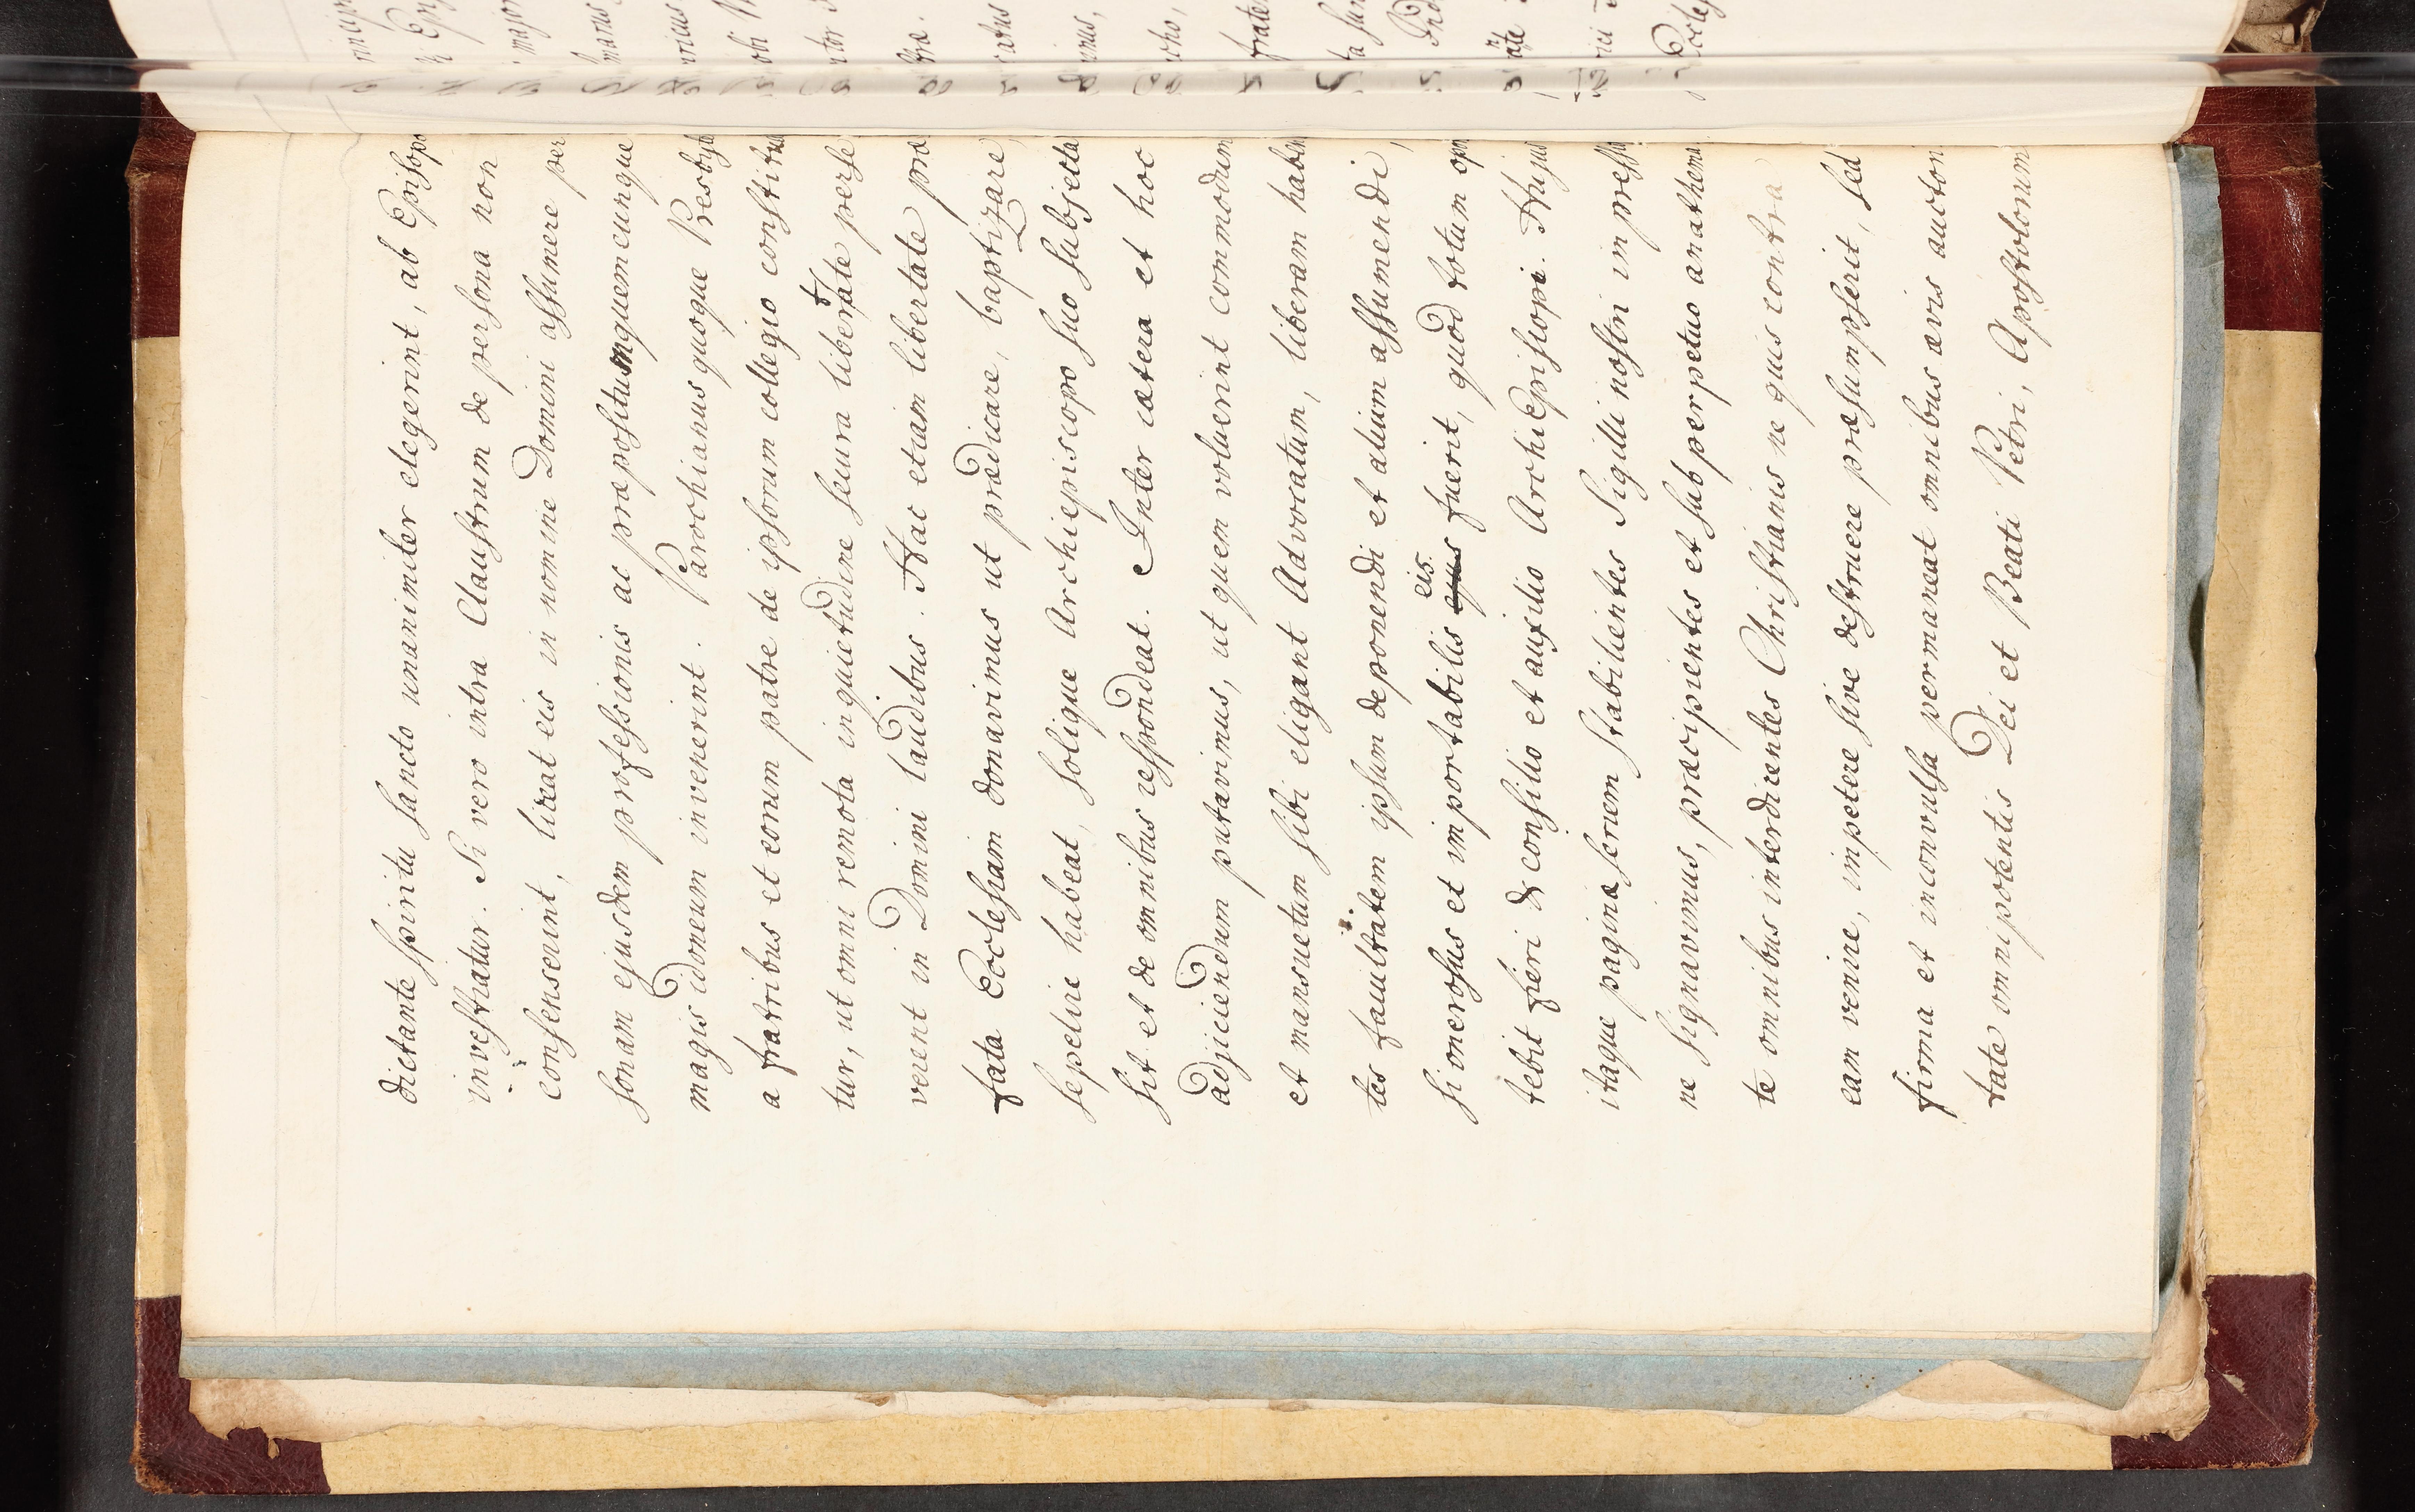 dictante spiritu sancto unanimiter elegerint, ab Episcopo
investiatur. Si vero intra Claustrum de persona non
consenserint, liceat eis in nomine Domini assumere per
sonam ejusdem professionis ac præpositumquemcunque
magis idoneum invenerint. Parochianus quoque Presbyt
a fratribus et eorum patre de ipsorum collegio constitua
tur, ut omni remota inquietudine secura libertate perse
verent in Domini laudibus. Hac etiam libertate præ
fata Ecclesiam donavimus ut prædicare, baptizare,
sepelire habeat, solique Archiepiscopo suo subjecta
sit et de omnibus respondeat. Inter cætera et hoc
adjiciendum putavimus, ut quem voluerint commodum
et mansuetum sibi eligant Advocatum, liberam haben
tes facultatem ipsum deponendi et alium assumendi,
si onerosus et importabilis ejus eis. fuerit, quod totum opor
tebit fieri de consilio et auxilio Archiepiscopi. Hujus
itaque paginæ seriem stabilientes Sigilli nostri impressio
ne signavimus, præcipientes et sub perpetuo anathema
te omnibus interdicentes Christianis ne quis contra
eam venire, impetere sive destruere præsumpserit, sed
firma et inconvulsa permaneat omnibus ævis auctori
tate omnipotentis Dei et Beati Petri, Apostolorum